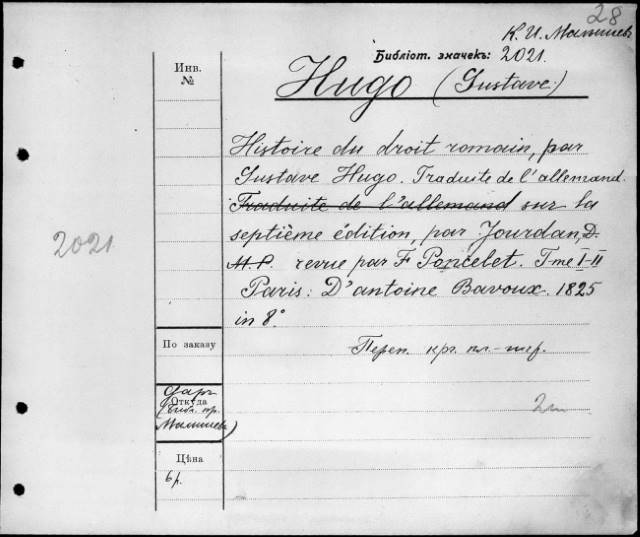 28
К. И. Малышев
Библіот. значекъ: 2021.
Инв.
№
Hugo (Gustave.)
Histoire du droit romain, par
Gustave Hugo. Traduite de l'allemand.
Traduite de l'allemand sur la
septième édition, par Jourdan, D.
M. P. revue par F. Poncelet. T-me I-II
Paris: D'antoine Bavoux. 1825
in 8°
2021
По заказу
Переп. кр. пл.-шер.
Даръ
Откуда
(библ. пр.
Малышева)
2 т
Цѣна
6 р.